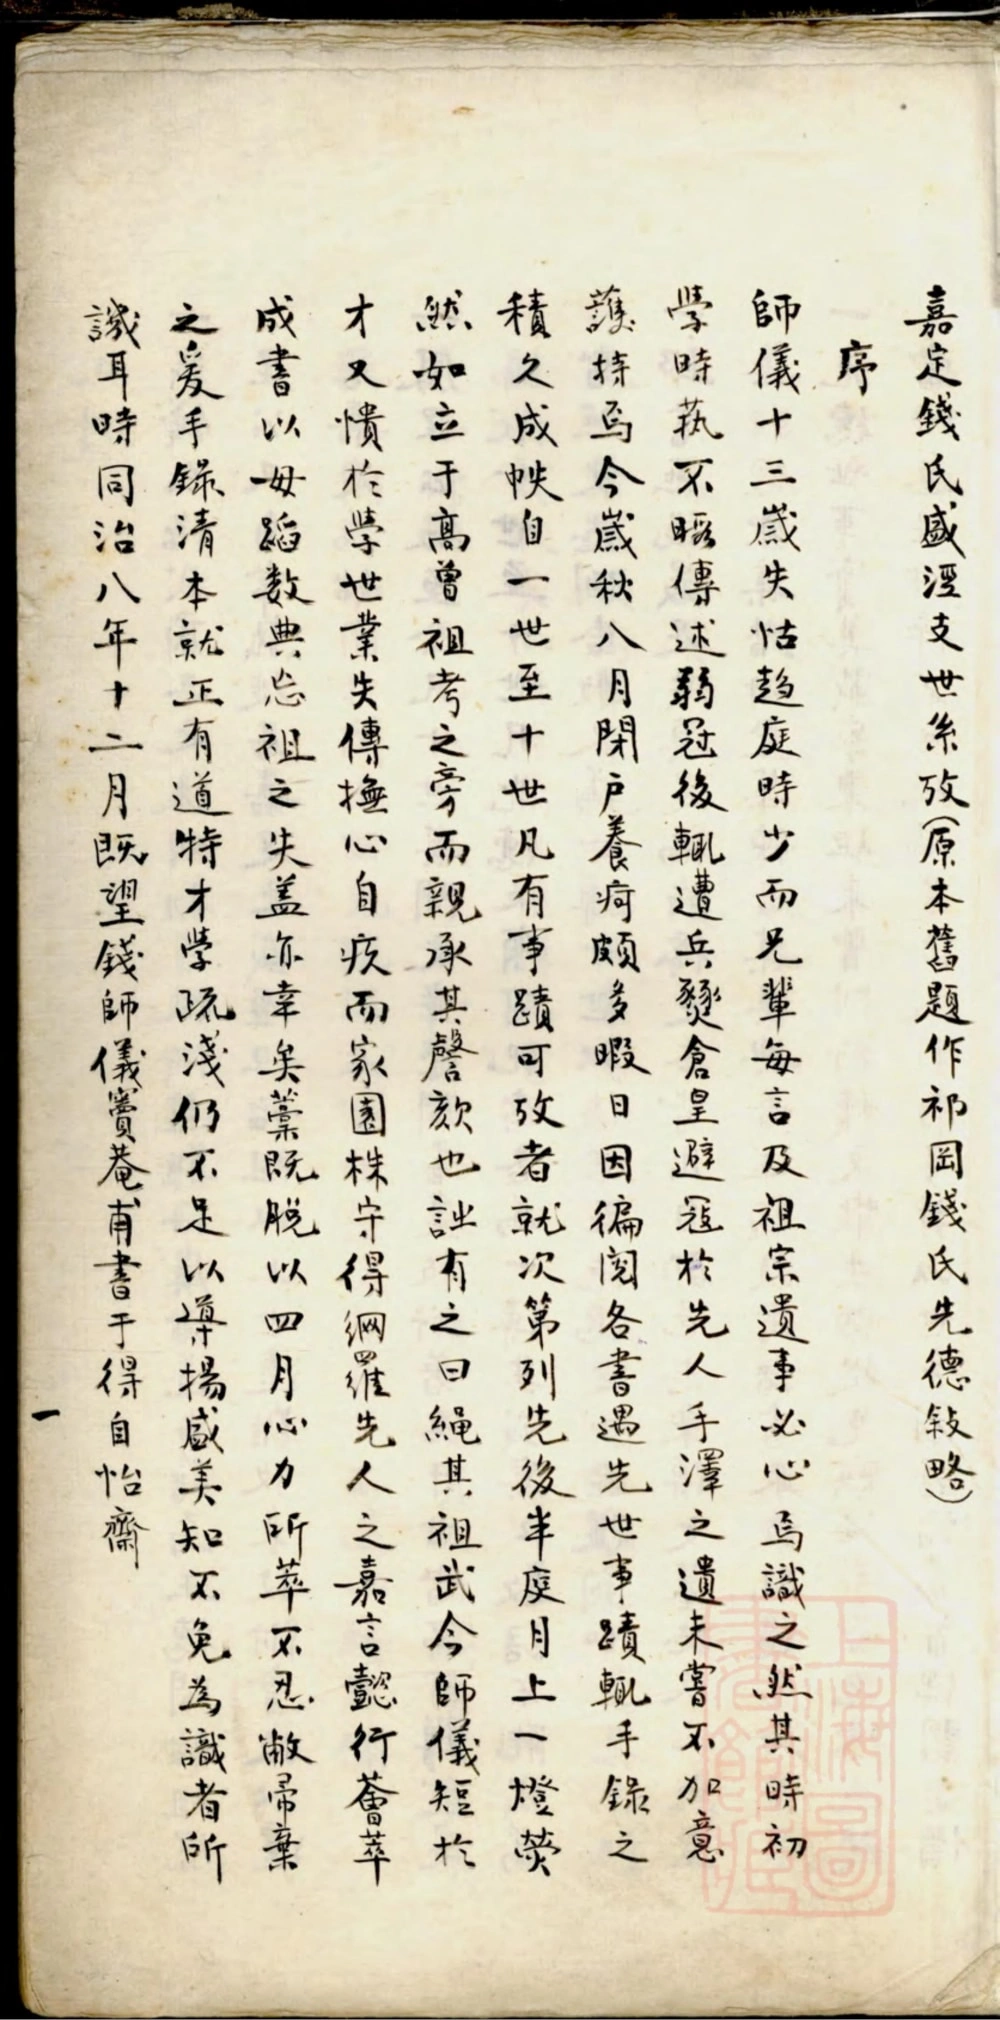 嘉定錢氏盛涇支世系攷(原本舊題作祁岡錢氏先德敍略)
序
師儀十三歲失怙趨庭時少而兄輩每言及祖宗遺事必心焉識之然其時初
學時藝不暇傳述弱冠後輒遭兵燹倉皇避寇於先人手澤之遺未嘗不加意
護持焉今歲秋八月閉戶養疴頗多暇日因徧閱各書遇先世事蹟輒手錄之
積久成帙自一世至十世凡有事蹟可攷者就次第列先後半庭月上一燈熒
然如立于高曾祖考之旁而親承其謦欬也詩有之曰繩其祖武今師儀短於
才又憒於學世業失傳撫心自疚而家園株守得網羅先人之嘉言懿行薈萃
成書以毋蹈數典忘祖之失蓋亦幸矣藁既脫以四月心力所萃不忍敝帚棄
之爰手錄清本就正有道特才學疏淺仍不足以導揚盛美知不免為識者所
譏耳時同治八年十二月既望錢師儀竇菴甫書于得自怡齋
一
上海圖書館藏